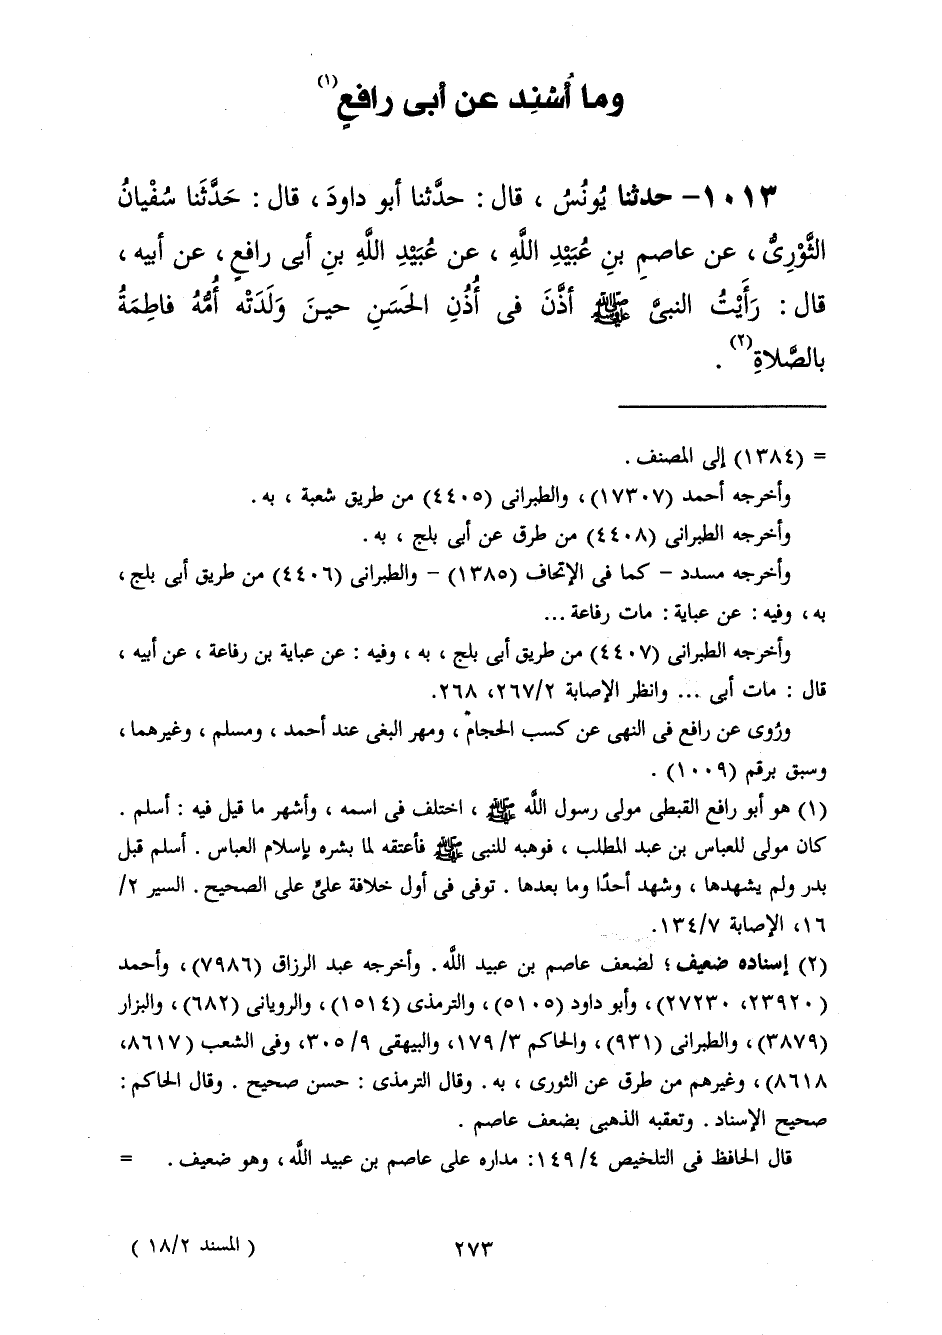 وما أُسْنِد عن أبى رافعٍ (١)
١٠١٣- حدثنا يُونُسُ ، قال : حدَّثنا أبو داودَ ، قال : حَدَّثَنا سُفْيانُ
الثَّوْرِىُّ ، عن عاصمِ بنِ عُبَيْدِ اللَّهِ ، عن عُبَيْدِ اللَّهِ بنِ أبى رافعٍ ، عن أبيه ،
قال : رَأَيْتُ النبىَّ ﷺ أذَّنَ فى أُذُنِ الحَسَنِ حينَ وَلَدَتْه أُمُّهُ فاطِمَةُ
بالصَّلاةِ (٢) .
= (١٣٨٤) إلى المصنف .
وأخرجه أحمد (١٧٣٠٧) ، والطبرانى (٤٤٠٥) من طريق شعبة ، به .
وأخرجه الطبرانى (٤٤٠٨) من طرق عن أبى بلج ، به .
وأخرجه مسدد - كما فى الإتحاف (١٣٨٥) - والطبرانى (٤٤٠٦) من طريق أبى بلج ،
به ، وفيه : عن عباية : مات رفاعة ...
وأخرجه الطبرانى (٤٤٠٧) من طريق أبى بلج ، به ، وفيه : عن عباية بن رفاعة ، عن أبيه ،
قال : مات أبى ... وانظر الإصابة ٢/ ٢٦٧، ٢٦٨.
ورُوى عن رافع فى النهى عن كسب الحجام ، ومهر البغى عند أحمد ، ومسلم ، وغيرهما ،
وسبق برقم (١٠٠٩) .
(١) هو أبو رافع القبطى مولى رسول اللَّه ﷺ ، اختلف فى اسمه ، وأشهر ما قيل فيه : أسلم .
كان مولى للعباس بن عبد المطلب ، فوهبه للنبى ﷺ فأعتقه لما بشره بإسلام العباس . أسلم قبل
بدر ولم يشهدها ، وشهد أحدًا وما بعدها . توفى فى أول خلافة علىٍّ على الصحيح . السير ٢/
١٦، الإصابة ٧/ ١٣٤.
(٢) إسناده ضعيف ؛ لضعف عاصم بن عبيد اللَّه . وأخرجه عبد الرزاق (٧٩٨٦) ، وأحمد
(٢٣٩٢٠، ٢٧٢٣٠) ، وأبو داود (٥١٠٥) ، والترمذى (١٥١٤) ، والرويانى (٦٨٢) ، والبزار
(٣٨٧٩) ، والطبرانى (٩٣١) ، والحاكم ٣/ ١٧٩، والبيهقى ٩/ ٣٠٥، وفى الشعب (٨٦١٧،
٨٦١٨) ، وغيرهم من طرق عن الثورى ، به . وقال الترمذى : حسن صحيح . وقال الحاكم :
صحيح الإسناد . وتعقبه الذهبى بضعف عاصم .
قال الحافظ فى التلخيص ٤/ ١٤٩: مداره على عاصم بن عبيد اللَّه ، وهو ضعيف . =
٢٧٣
( المسند ٢/ ١٨ )